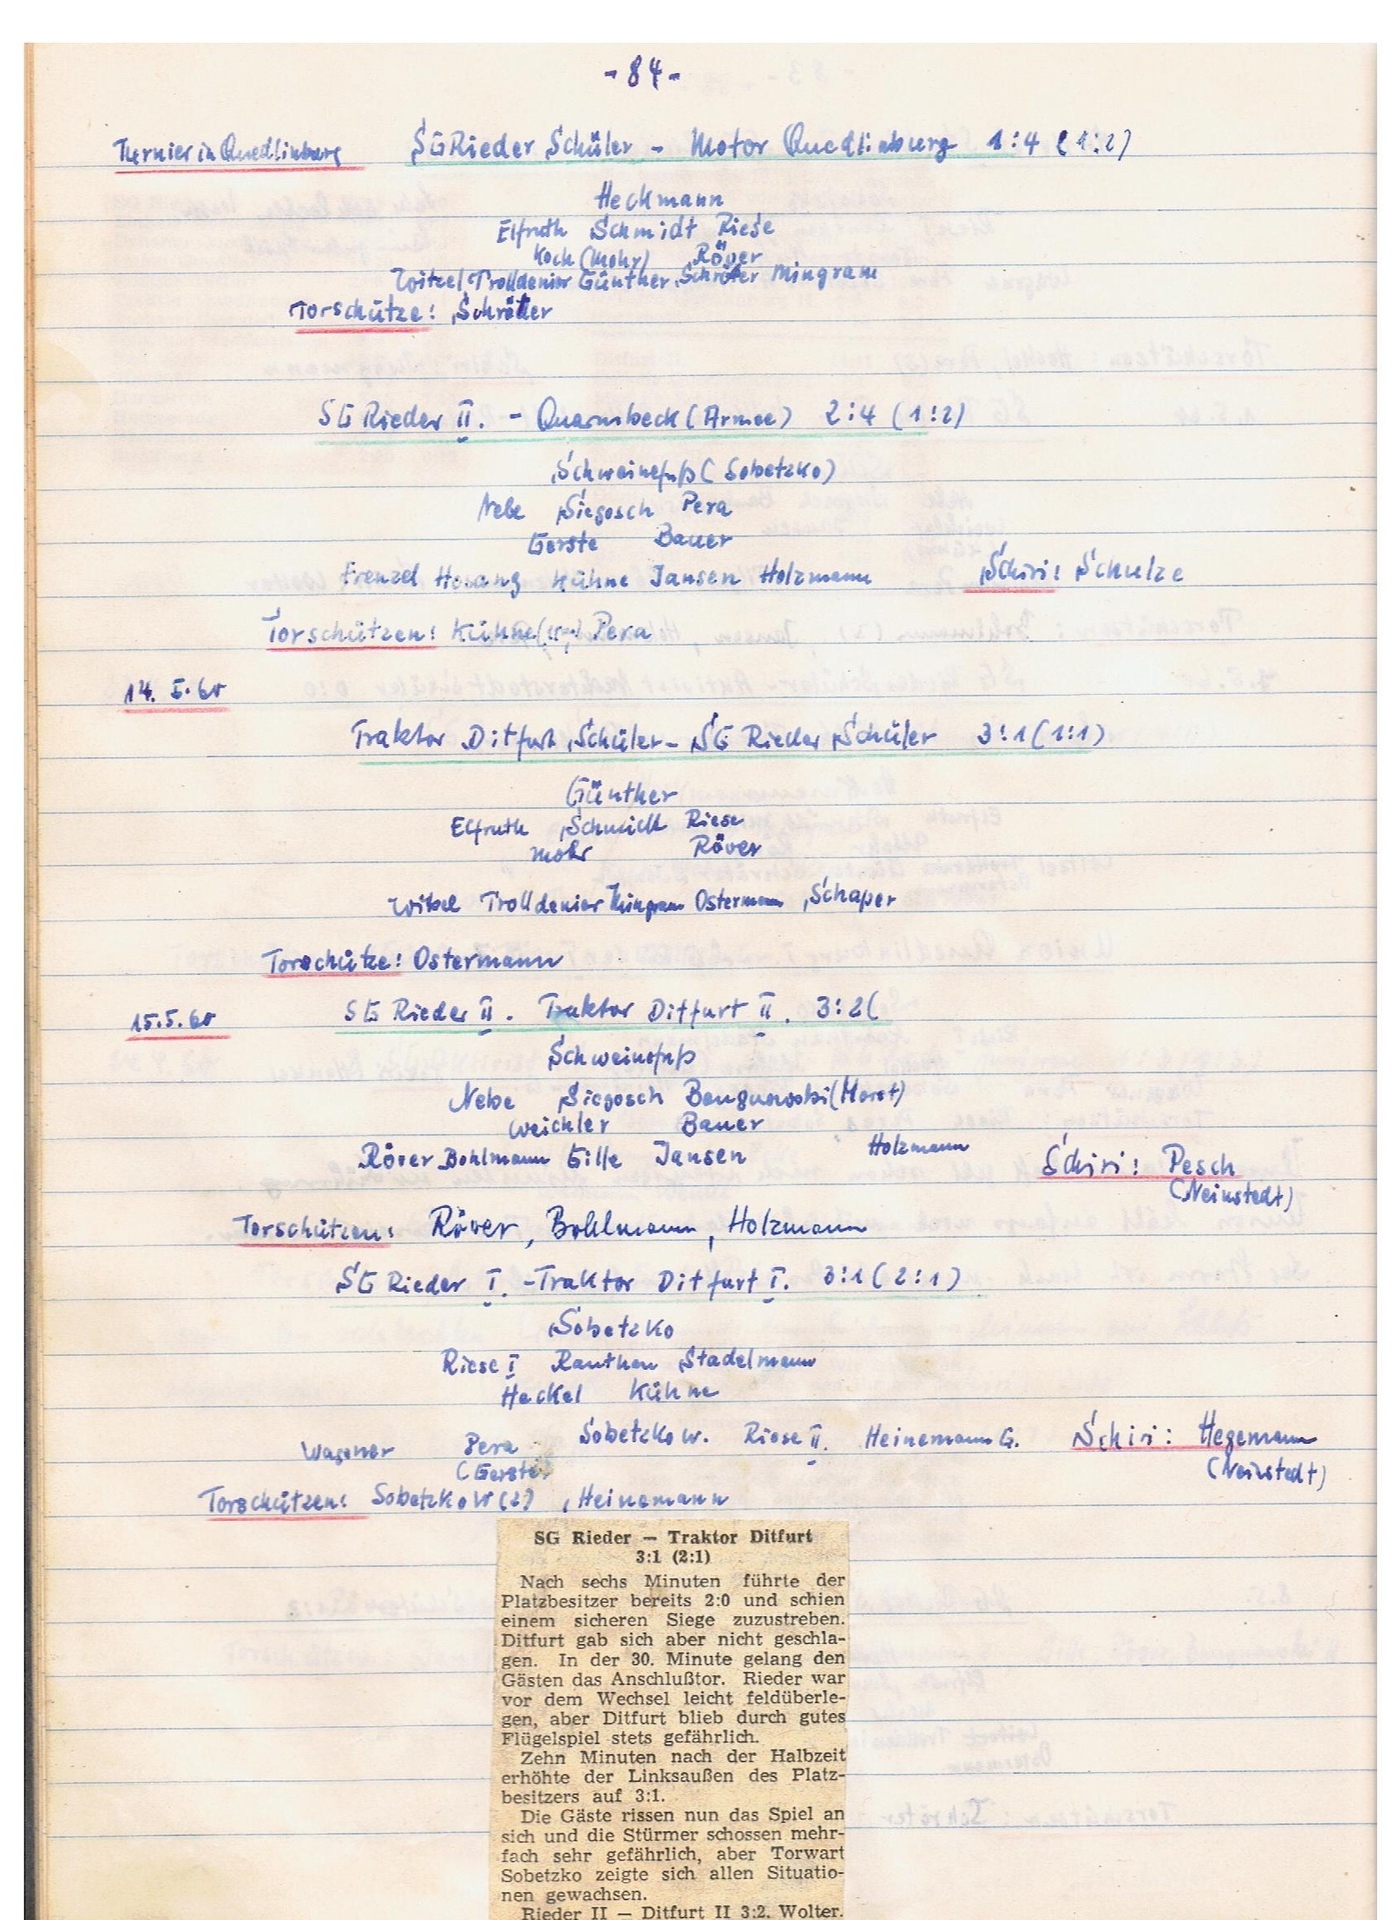 - 84 -
Turnier in Quedlinburg SG Rieder Schüler - Motor Quedlinburg 1:4 (1:2)
Heckmann
Elfruth Schmidt Riese
Koch (Mohr) Röver
Witzel Trolldenier Günther Schröter Mingram
Torschütze: Schröter
SG Rieder II. - Quarmbeck (Armee) 2:4 (1:2)
Schweinefuß (Sobetzko)
Nebe Siegosch Pera
Gerste Bauer
Frenzel Kühne Jansen Holzmann Schiri: Schulze
Torschützen: Kühne Pera
14. 5. 60
Traktor Ditfurt Schüler - SG Rieder Schüler 3:1 (1:1)
Günther
Elfruth Schmidt Riese
Mohr Röver
Witzel Trolldenier Mingram Ostermann Schaper
Torschütze: Ostermann
15.5.60 SG Rieder II. Traktor Ditfurt II. 3:2 (
Schweinefuß
Nebe Siegosch (Horst)
Weichler Bauer
Röver Bohlmann Gille Jansen Holzmann Schiri: Pesch
(Neinstedt)
Torschützen: Röver, Bohlmann, Holzmann
SG Rieder I. - Traktor Ditfurt I. 3:1 (2:1)
Sobetzko
Riese I Ranthen Stadelmann
Heckel Kühne
Wagener Pera Sobetzko W. Riese II. Heinemann G. Schiri: Hegemann
(Gerste) (Neinstedt)
Torschützen: Sobetzko W (2), Heinemann
SG Rieder — Traktor Ditfurt
3:1 (2:1)
Nach sechs Minuten führte der
Platzbesitzer bereits 2:0 und schien
einem sicheren Siege zuzustreben.
Ditfurt gab sich aber nicht geschla-
gen. In der 30. Minute gelang den
Gästen das Anschlußtor. Rieder war
vor dem Wechsel leicht feldüberle-
gen, aber Ditfurt blieb durch gutes
Flügelspiel stets gefährlich.
Zehn Minuten nach der Halbzeit
erhöhte der Linksaußen des Platz-
besitzers auf 3:1.
Die Gäste rissen nun das Spiel an
sich und die Stürmer schossen mehr-
fach sehr gefährlich, aber Torwart
Sobetzko zeigte sich allen Situatio-
nen gewachsen.
Rieder II — Ditfurt II 3:2. Wolter.